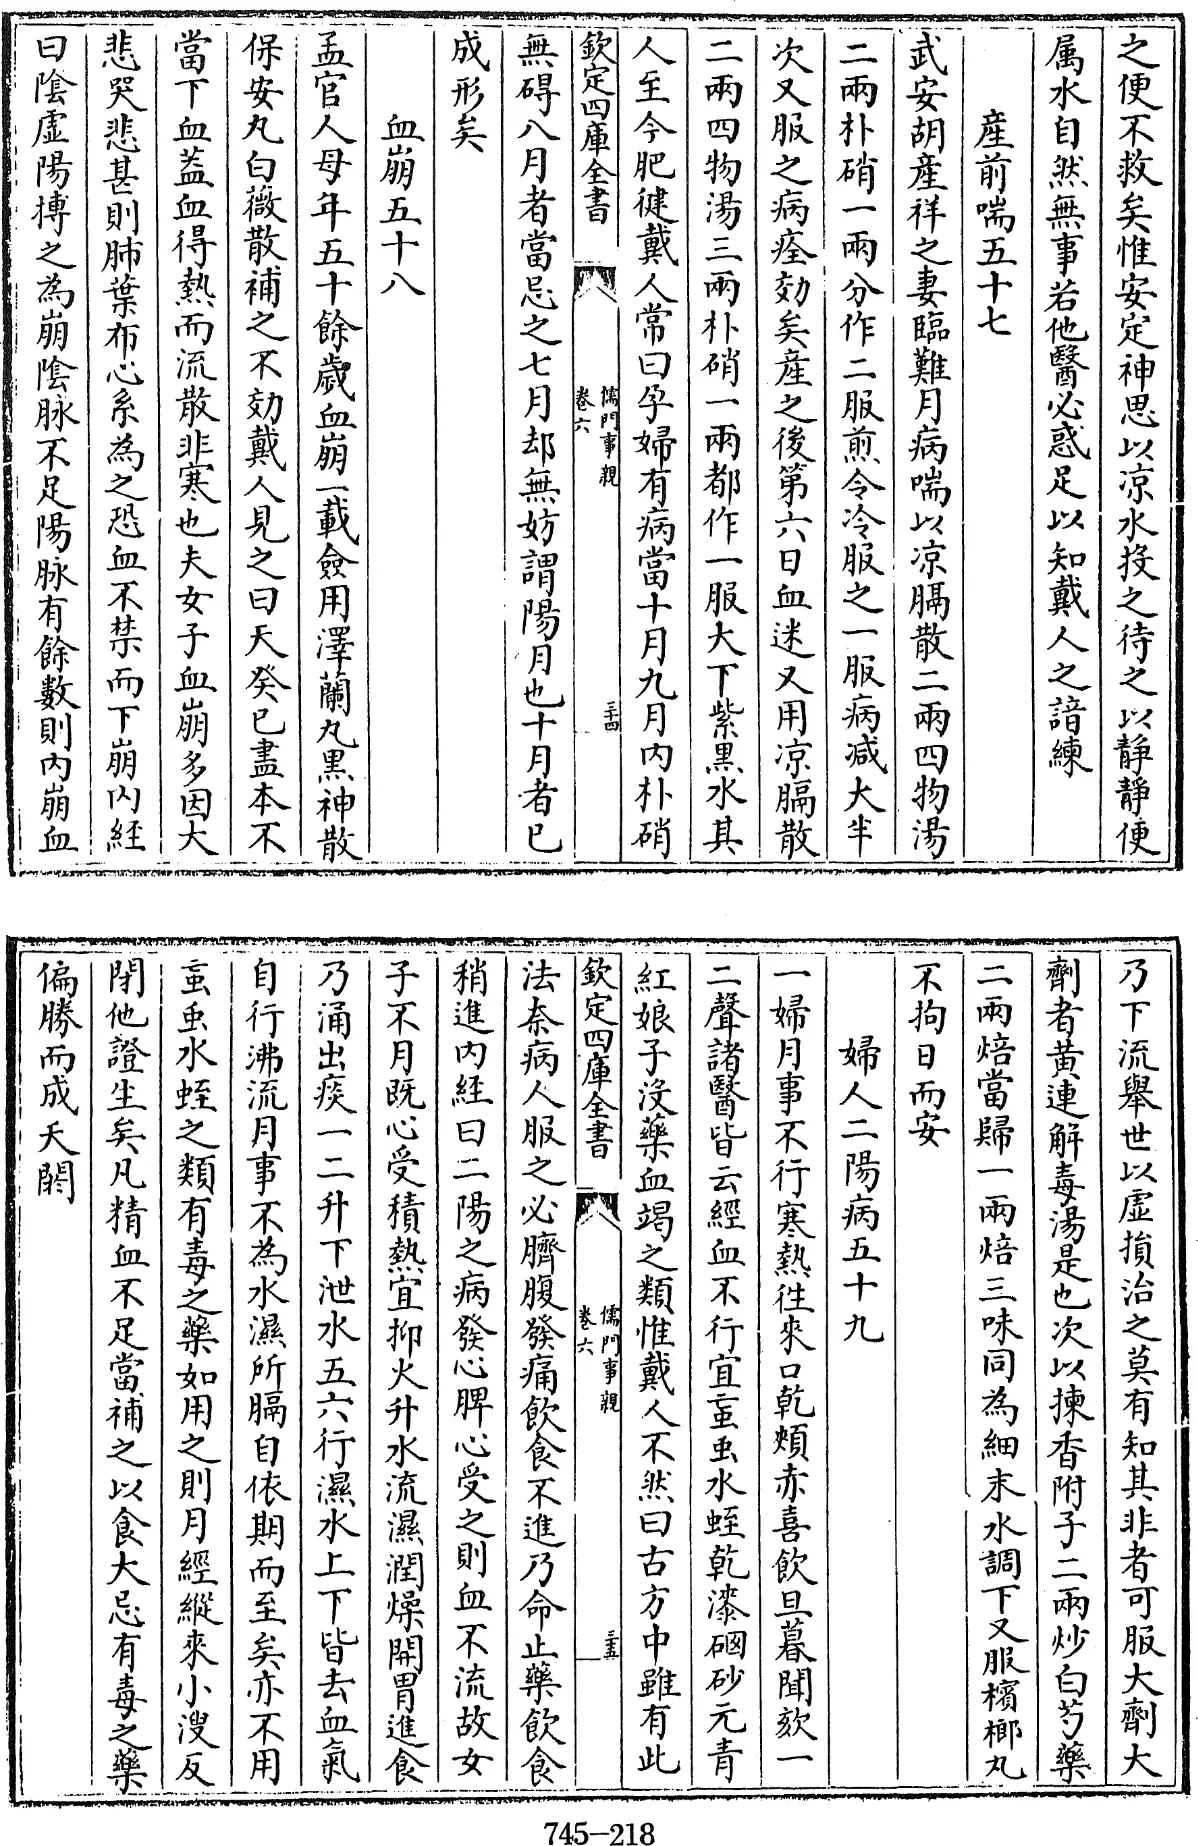 之便不救矣惟安定神思以凉水投之待之以靜靜便
属水自然無事若他醫必惑足以知戴人之諳練
產前喘五十七
武安胡產祥之妻臨難月病喘以凉膈散二兩四物湯
二兩朴硝一兩分作二服煎令冷服之一服病减大半
次又服之病痊効矣產之後第六日血迷又用凉膈散
二兩四物湯三兩朴硝一兩都作一服大下紫黒水其
人至今肥健戴人常曰孕婦有病當十月九月内朴硝
欽定四庫全書
儒門事親
卷六
三十四
無碍八月者當忌之七月却無妨謂陽月也十月者已
成形矣
血崩五十八
孟官人母年五十餘歲血崩一載僉用澤蘭丸黒神散
保安丸白薇散補之不効戴人見之曰天癸已盡本不
當下血蓋血得熱而流散非寒也夫女子血崩多因大
悲哭悲甚則肺葉布心系為之恐血不禁而下崩内經
曰陰虛陽搏之為崩陰脉不足陽脉有餘數則内崩血
乃下流舉世以虛損治之莫有知其非者可服大劑大
劑者黄連解毒湯是也次以揀香附子二兩炒白芍藥
二兩焙當歸一兩焙三味同為細末水調下又服檳榔丸
不拘日而安
婦人二陽病五十九
一婦月事不行寒熱往來口乾頰赤喜飲旦暮聞欬一
二聲諸醫皆云經血不行宜䖟虫水蛭乾漆硇砂元青
紅娘子沒藥血竭之類惟戴人不然曰古方中雖有此
欽定四庫全書
儒門事親
卷六
三十五
法奈病人服之必臍腹發痛飲食不進乃命止藥飲食
稍進内經曰二陽之病發心脾心受之則血不流故女
子不月既心受積熱宜抑火升水流濕潤燥開胃進食
乃涌出痰一二升下泄水五六行濕水上下皆去血氣
自行沸流月事不為水濕所膈自依期而至矣亦不用
䖟虫水蛭之類有毒之藥如用之則月經縱來小溲反
閉他證生矣凡精血不足當補之以食大忌有毒之藥
偏勝而成夭閼
745-218